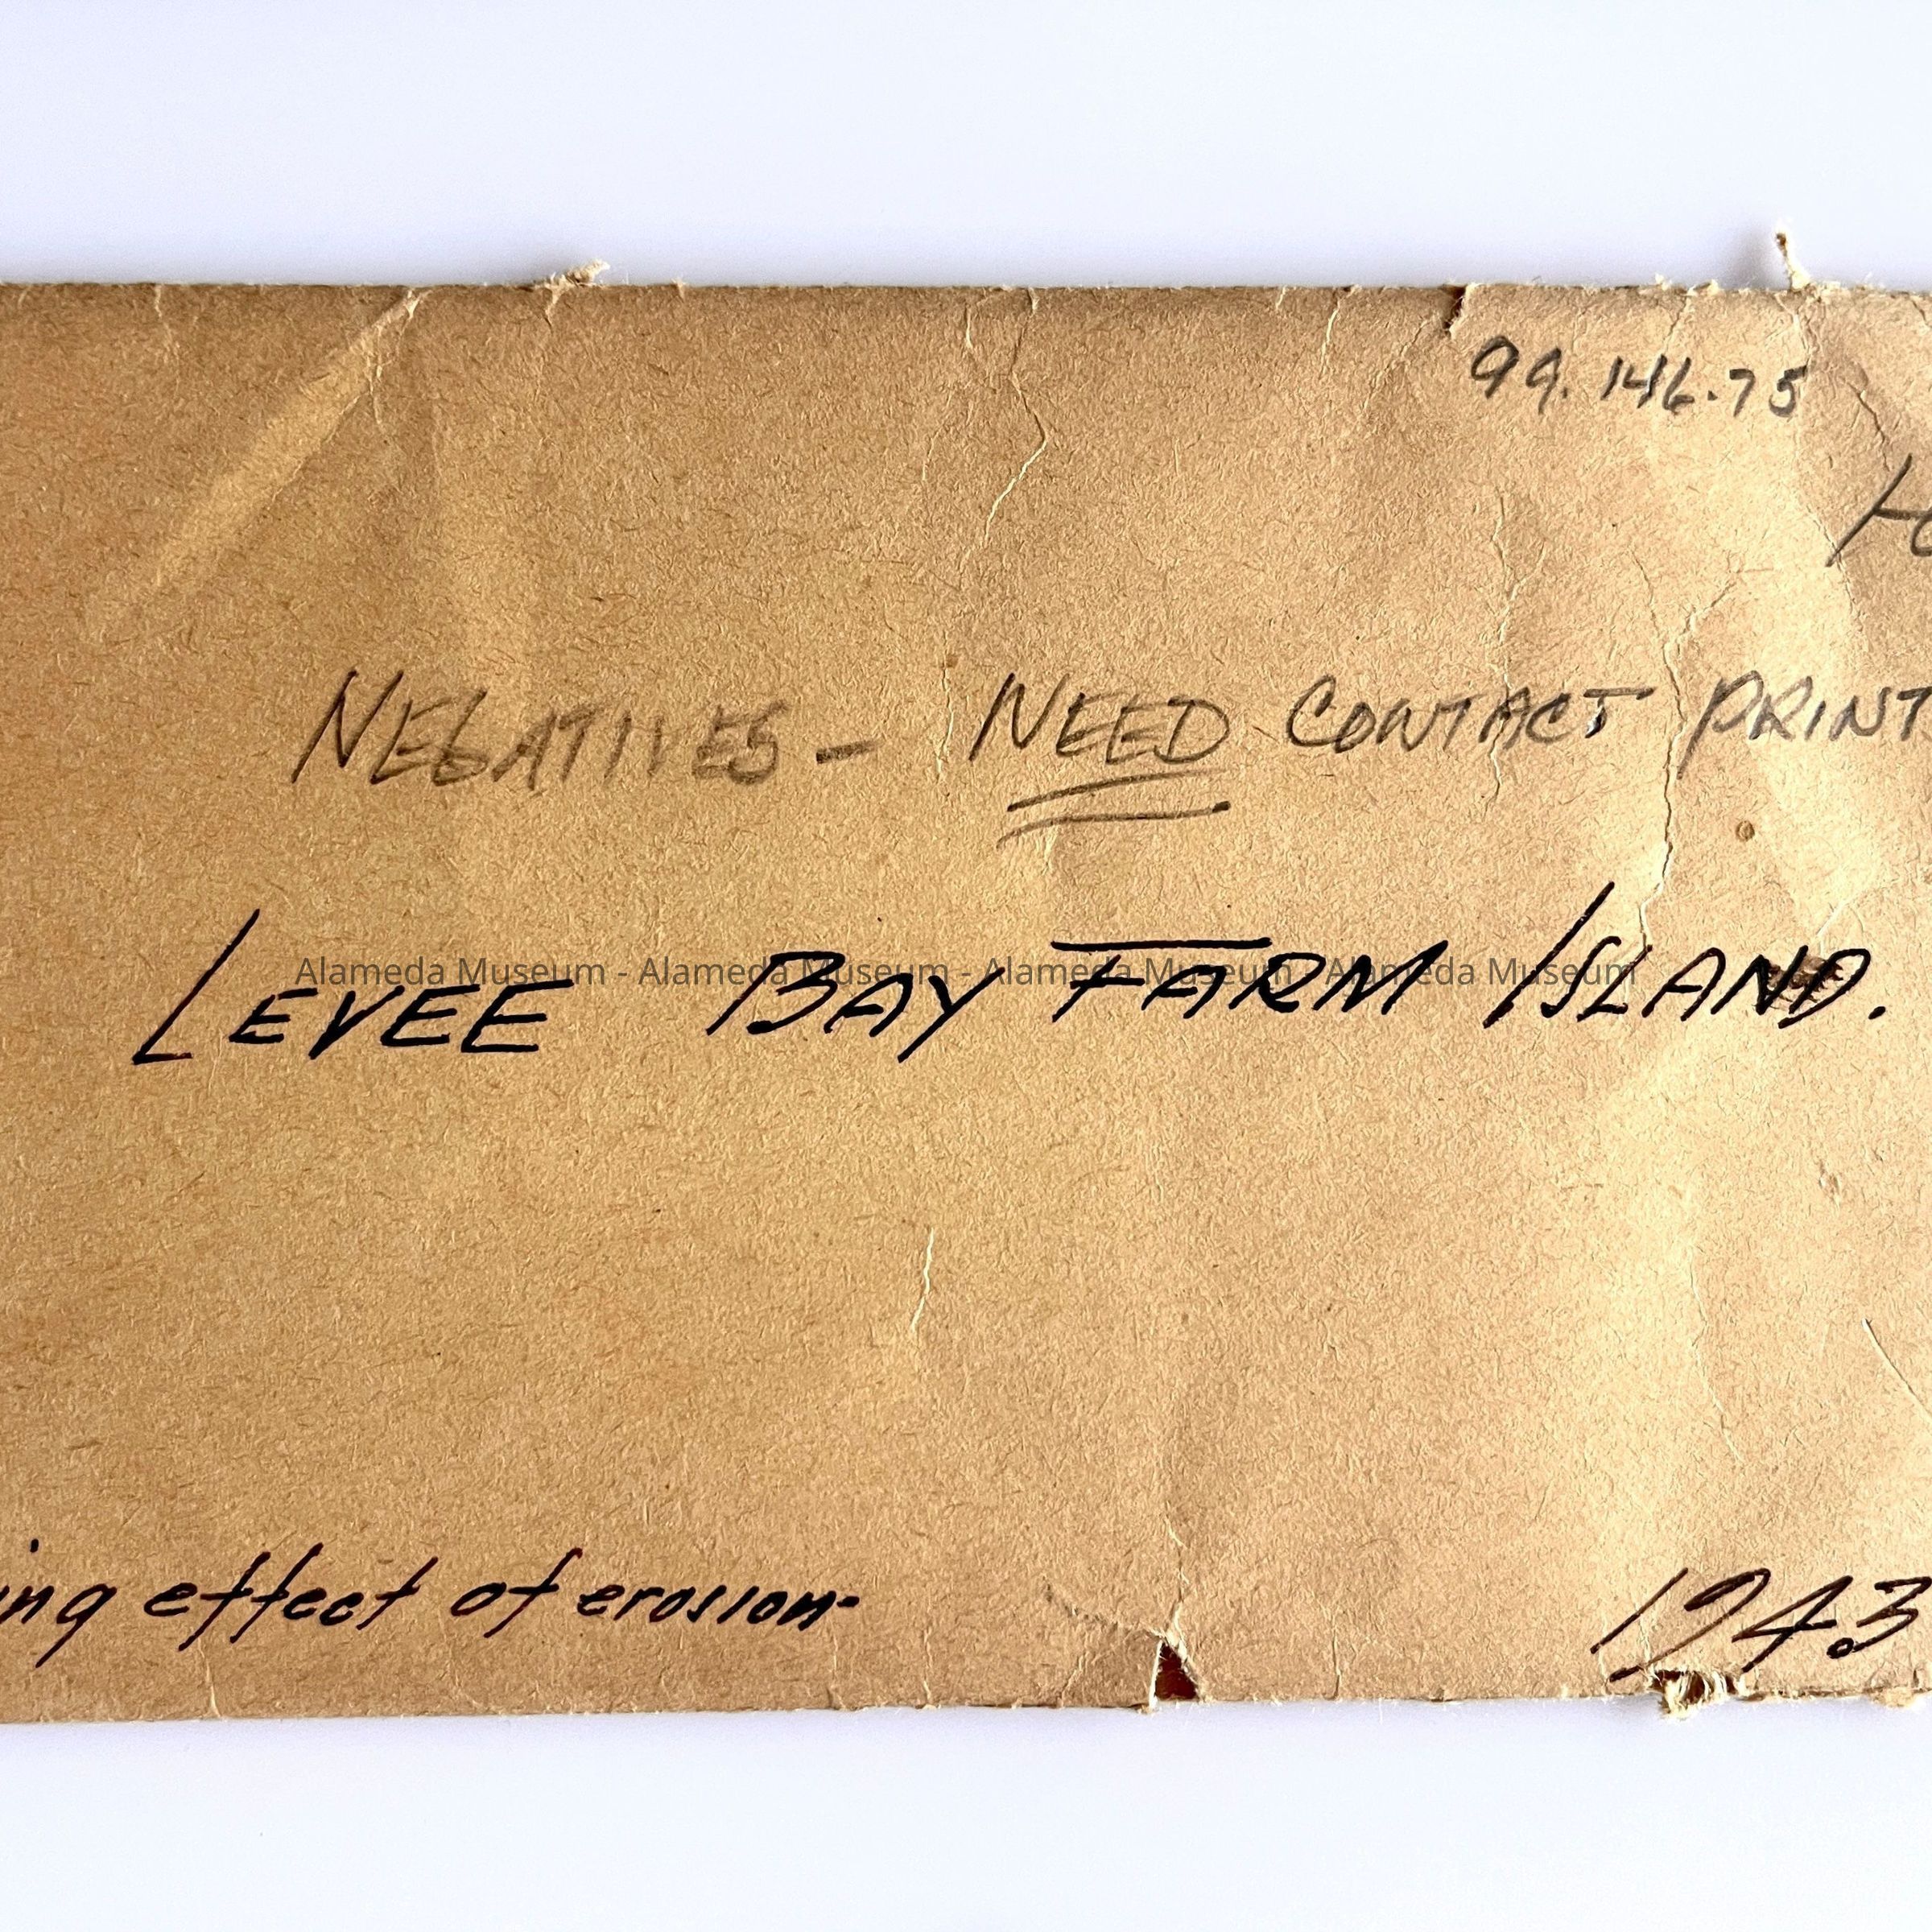 99.146.75
NEGATIVES - NEED CONTACT PRINT
LEVEE BAY FARM ISLAND.
Alameda Museum - Alameda Museum - Alameda Museum - Alameda Museum
ing effect of erosion-
1943